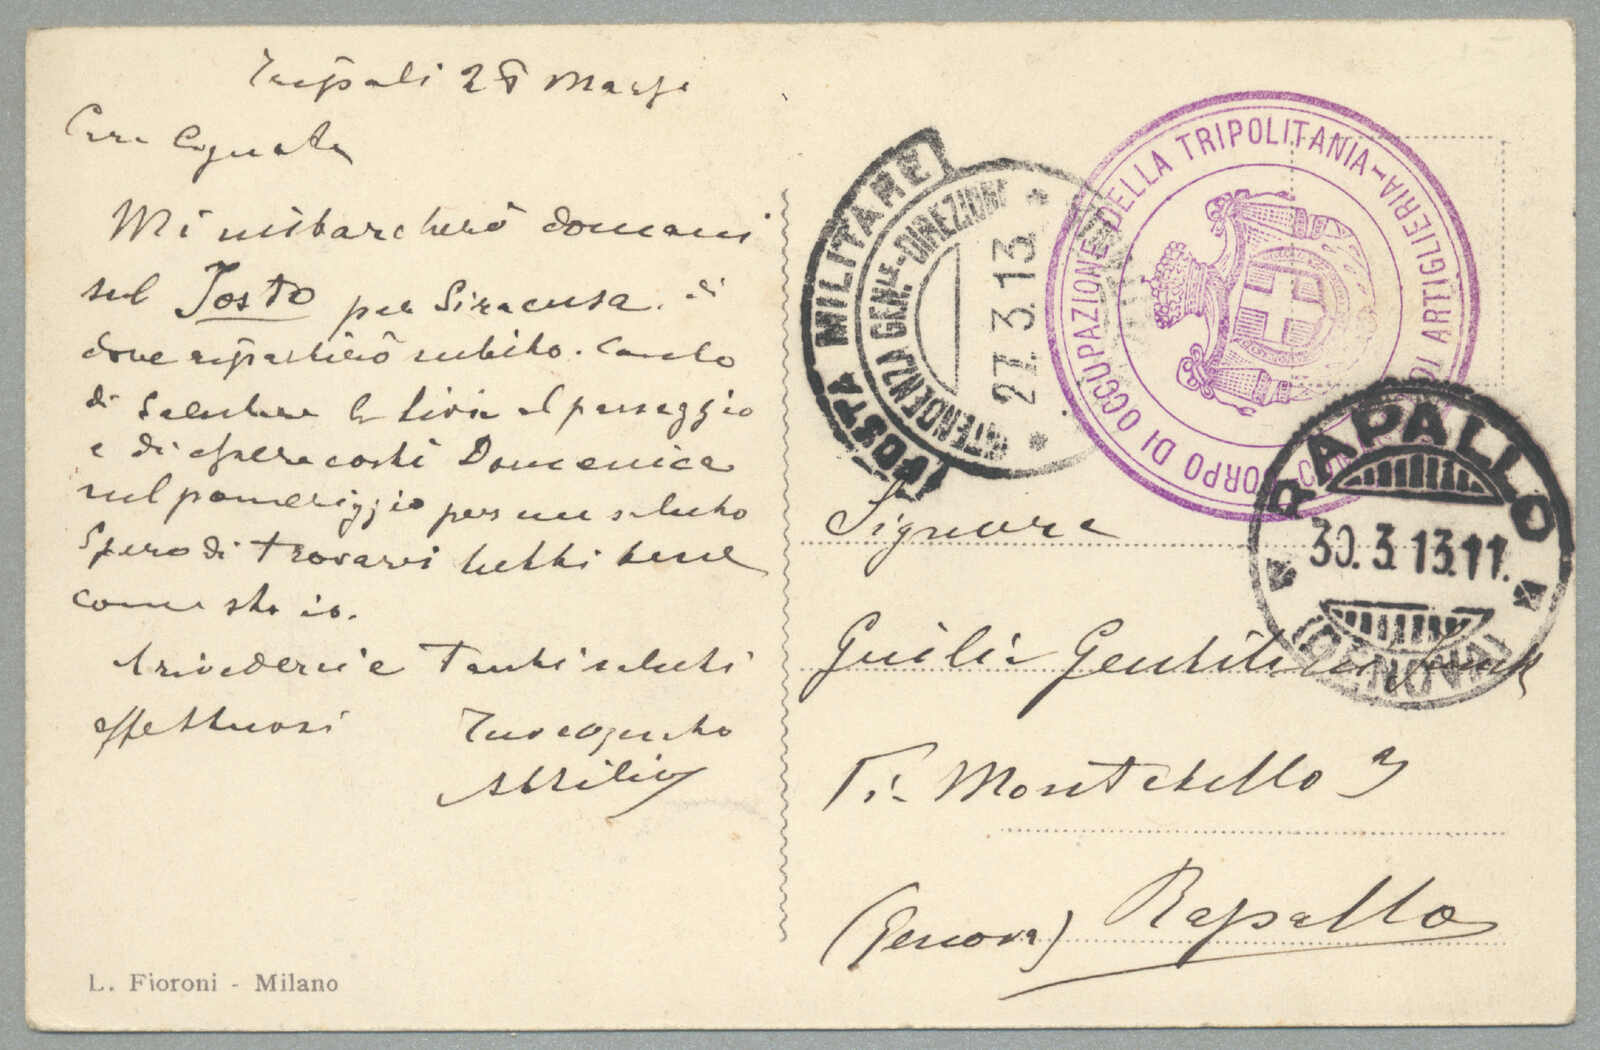 Tripoli 28 Marzo
Cara Cognata
Mi imbarcherò domani
sul Tosto per Siracusa. di
dove ripartirò subito. Conto
di salutare la Livia al passaggio
e di essere costì Domenica
nel pomeriggio per un saluto
Spero di trovarvi tutti bene
come sto io.
Arivederci e tanti saluti
effettuosi Tuo cognato
Attilio
L. Fioroni - Milano
POSTA MILITARE
INTENDENZA GEN.LE-DIREZIONE
27.3.13.
CORPO DI OCCUPAZIONE DELLA TRIPOLITANIA-
DI ARTIGLIERIA-
RAPALLO
30.3.13.11.
(GENOVA)
Signora
Giulia Gentili
Via Montebello 9
(Genova) Rapallo